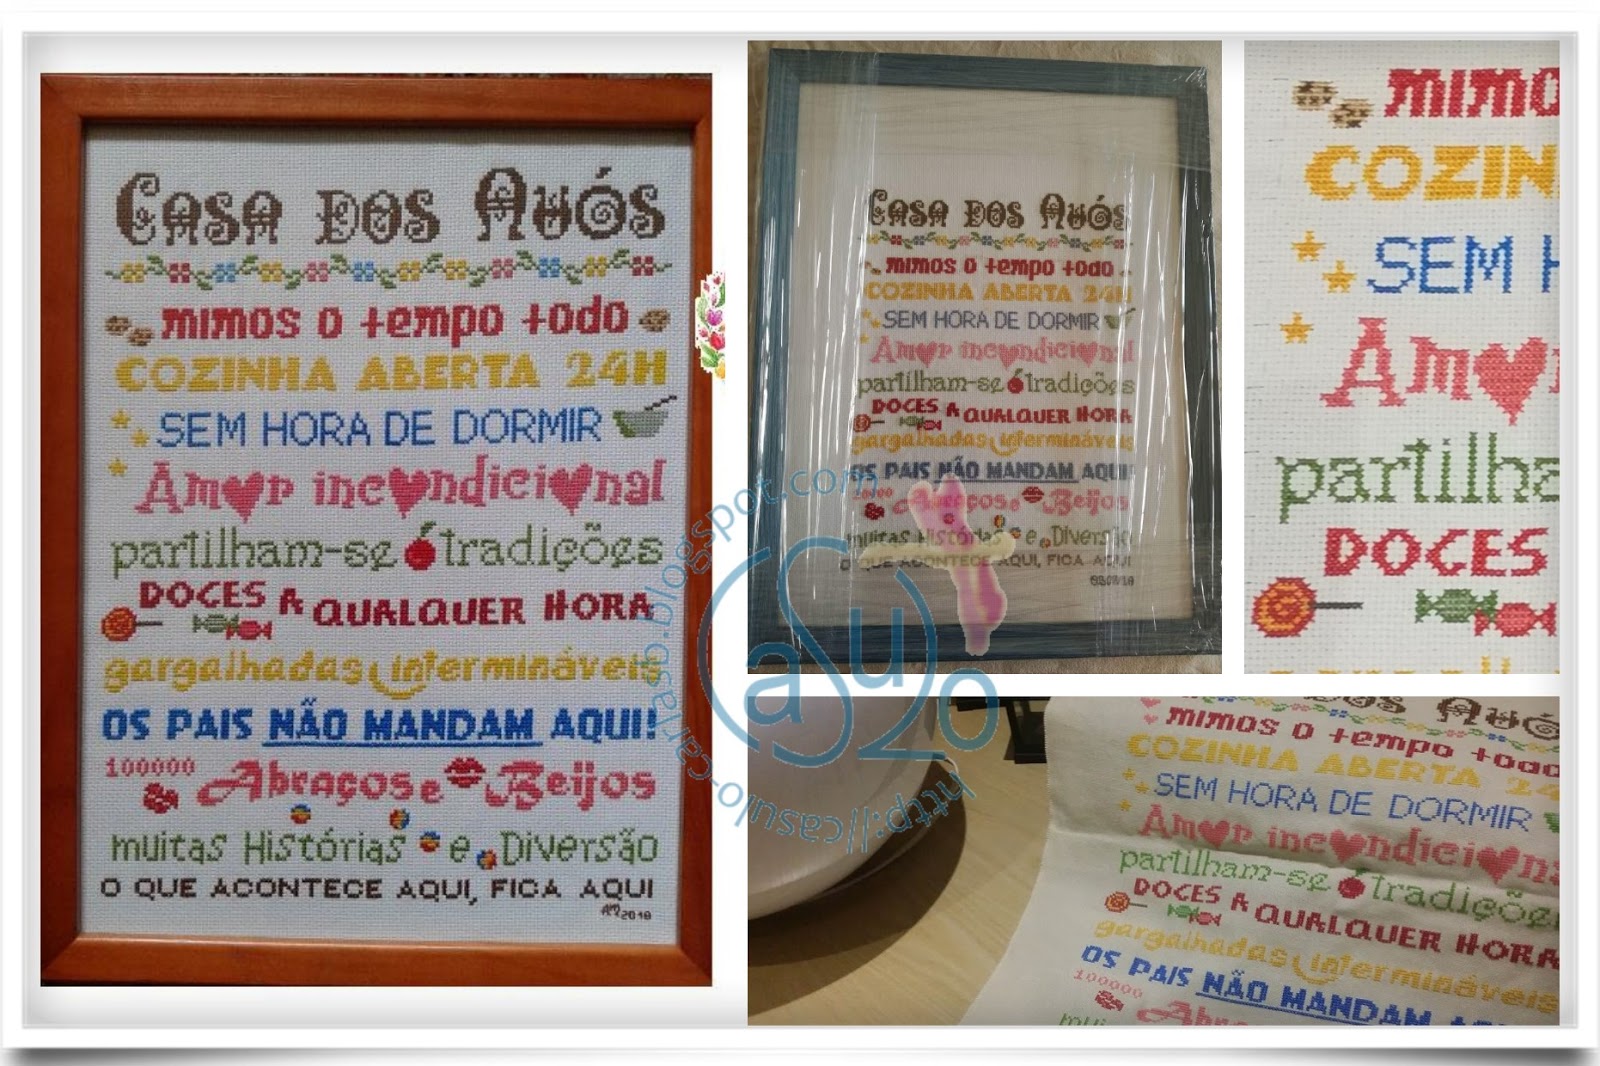 Casa dos Avós
mimos o tempo todo
COZINHA ABERTA 24H
SEM HORA DE DORMIR
Amor incondicional
partilham-se tradições
DOCES A QUALQUER HORA
gargalhadas intermináveis
OS PAIS NÃO MANDAM AQUI!
100000 Abraços e Beijos
muitas Histórias e Diversão
O QUE ACONTECE AQUI, FICA AQUI
AM 2018
Casa dos Avós
mimos o tempo todo
COZINHA ABERTA 24H
SEM HORA DE DORMIR
Amor incondicional
partilham-se tradições
DOCES A QUALQUER HORA
gargalhadas intermináveis
OS PAIS NÃO MANDAM AQUI!
100000 Abraços e Beijos
muitas Histórias e Diversão
O QUE ACONTECE AQUI, FICA AQUI
mimo
COZIN
SEM H
Amor
partilha
DOCES
dos Avó
mimos o tempo todo
COZINHA ABERTA 24
SEM HORA DE DORMIR
Amor incondiciona
partilham-se tradiçõe
DOCES A QUALQUER HORA
gargalhadas intermináveis
OS PAIS NÃO MANDAM AQ
100000
Abraços
mui
caSulo
http://casulo-carvaso.blogspot.com